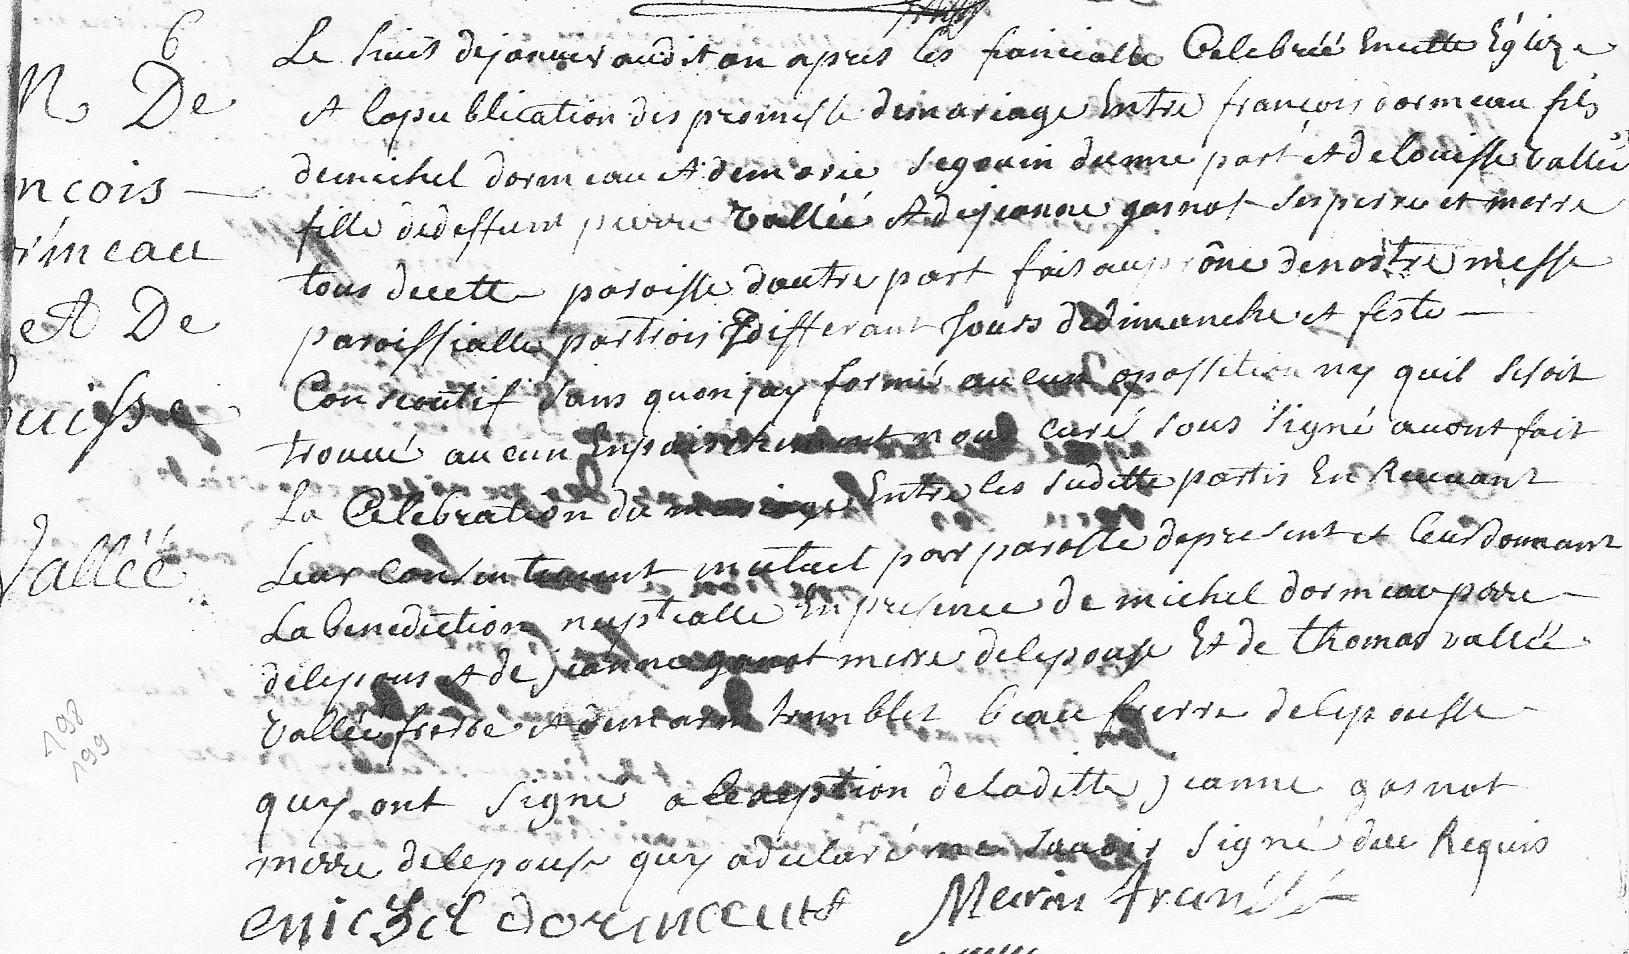 6
M De
ncois
rmeau
et De
ouisse
Vallée
198
199
Le huit de janvier audit an apres les fiancialle Celebréé En cette Églize
et la publication des promesse de mariage Entre françois dormeau fils
de michel dormeau et de marie segouin dunne part et de louisse vallée
fille de deffunt pierre vallée et de jeanne gasnot ses perre et merre
tous de cette paroisse dautre part fait au prône de nostre messe
paroissialle par trois differant jours de dimanche et feste
Consecutif sans quon jay formé aucune opossition ny quil se soit
trouvé aucun Enpaichement nous curé sous signé avont fait
La Celebration du mariage Entre les suditte partis En Recevant
Leur consentement mutuel par parolle de present et leur donnant
La benediction nuptialle En presence de michel dormeau perre
de lepous et de jeanne gasnot merre de lepouse Et de thomas vallée
vallée frerre et de marin trumblet beau frerre de lepousse
quy ont signé a lexeption de laditte jeanne gasnot
merre de lepouse quy a declaré ne savoir signé due Requis
michel dormeau
Marin